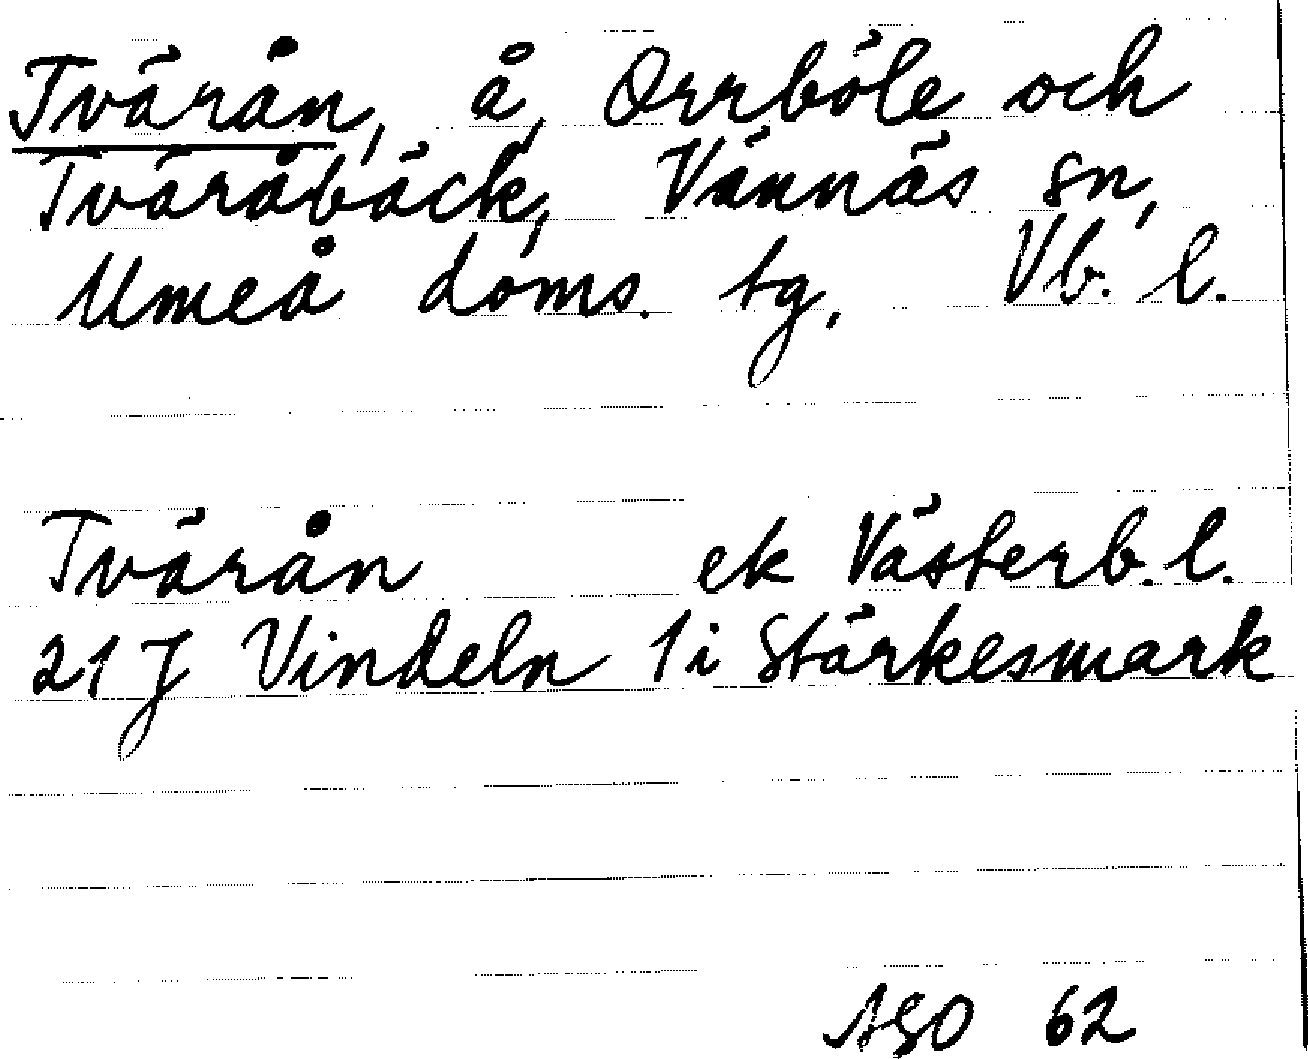 Tvärån, å, Orrböle och
Tväråbäck, Vännäs sn,
Umeå doms. tg, Vb. l.
Tvärån ek Västerb. l.
21 J Vindeln 1 i Stärkesmark
ASO 62